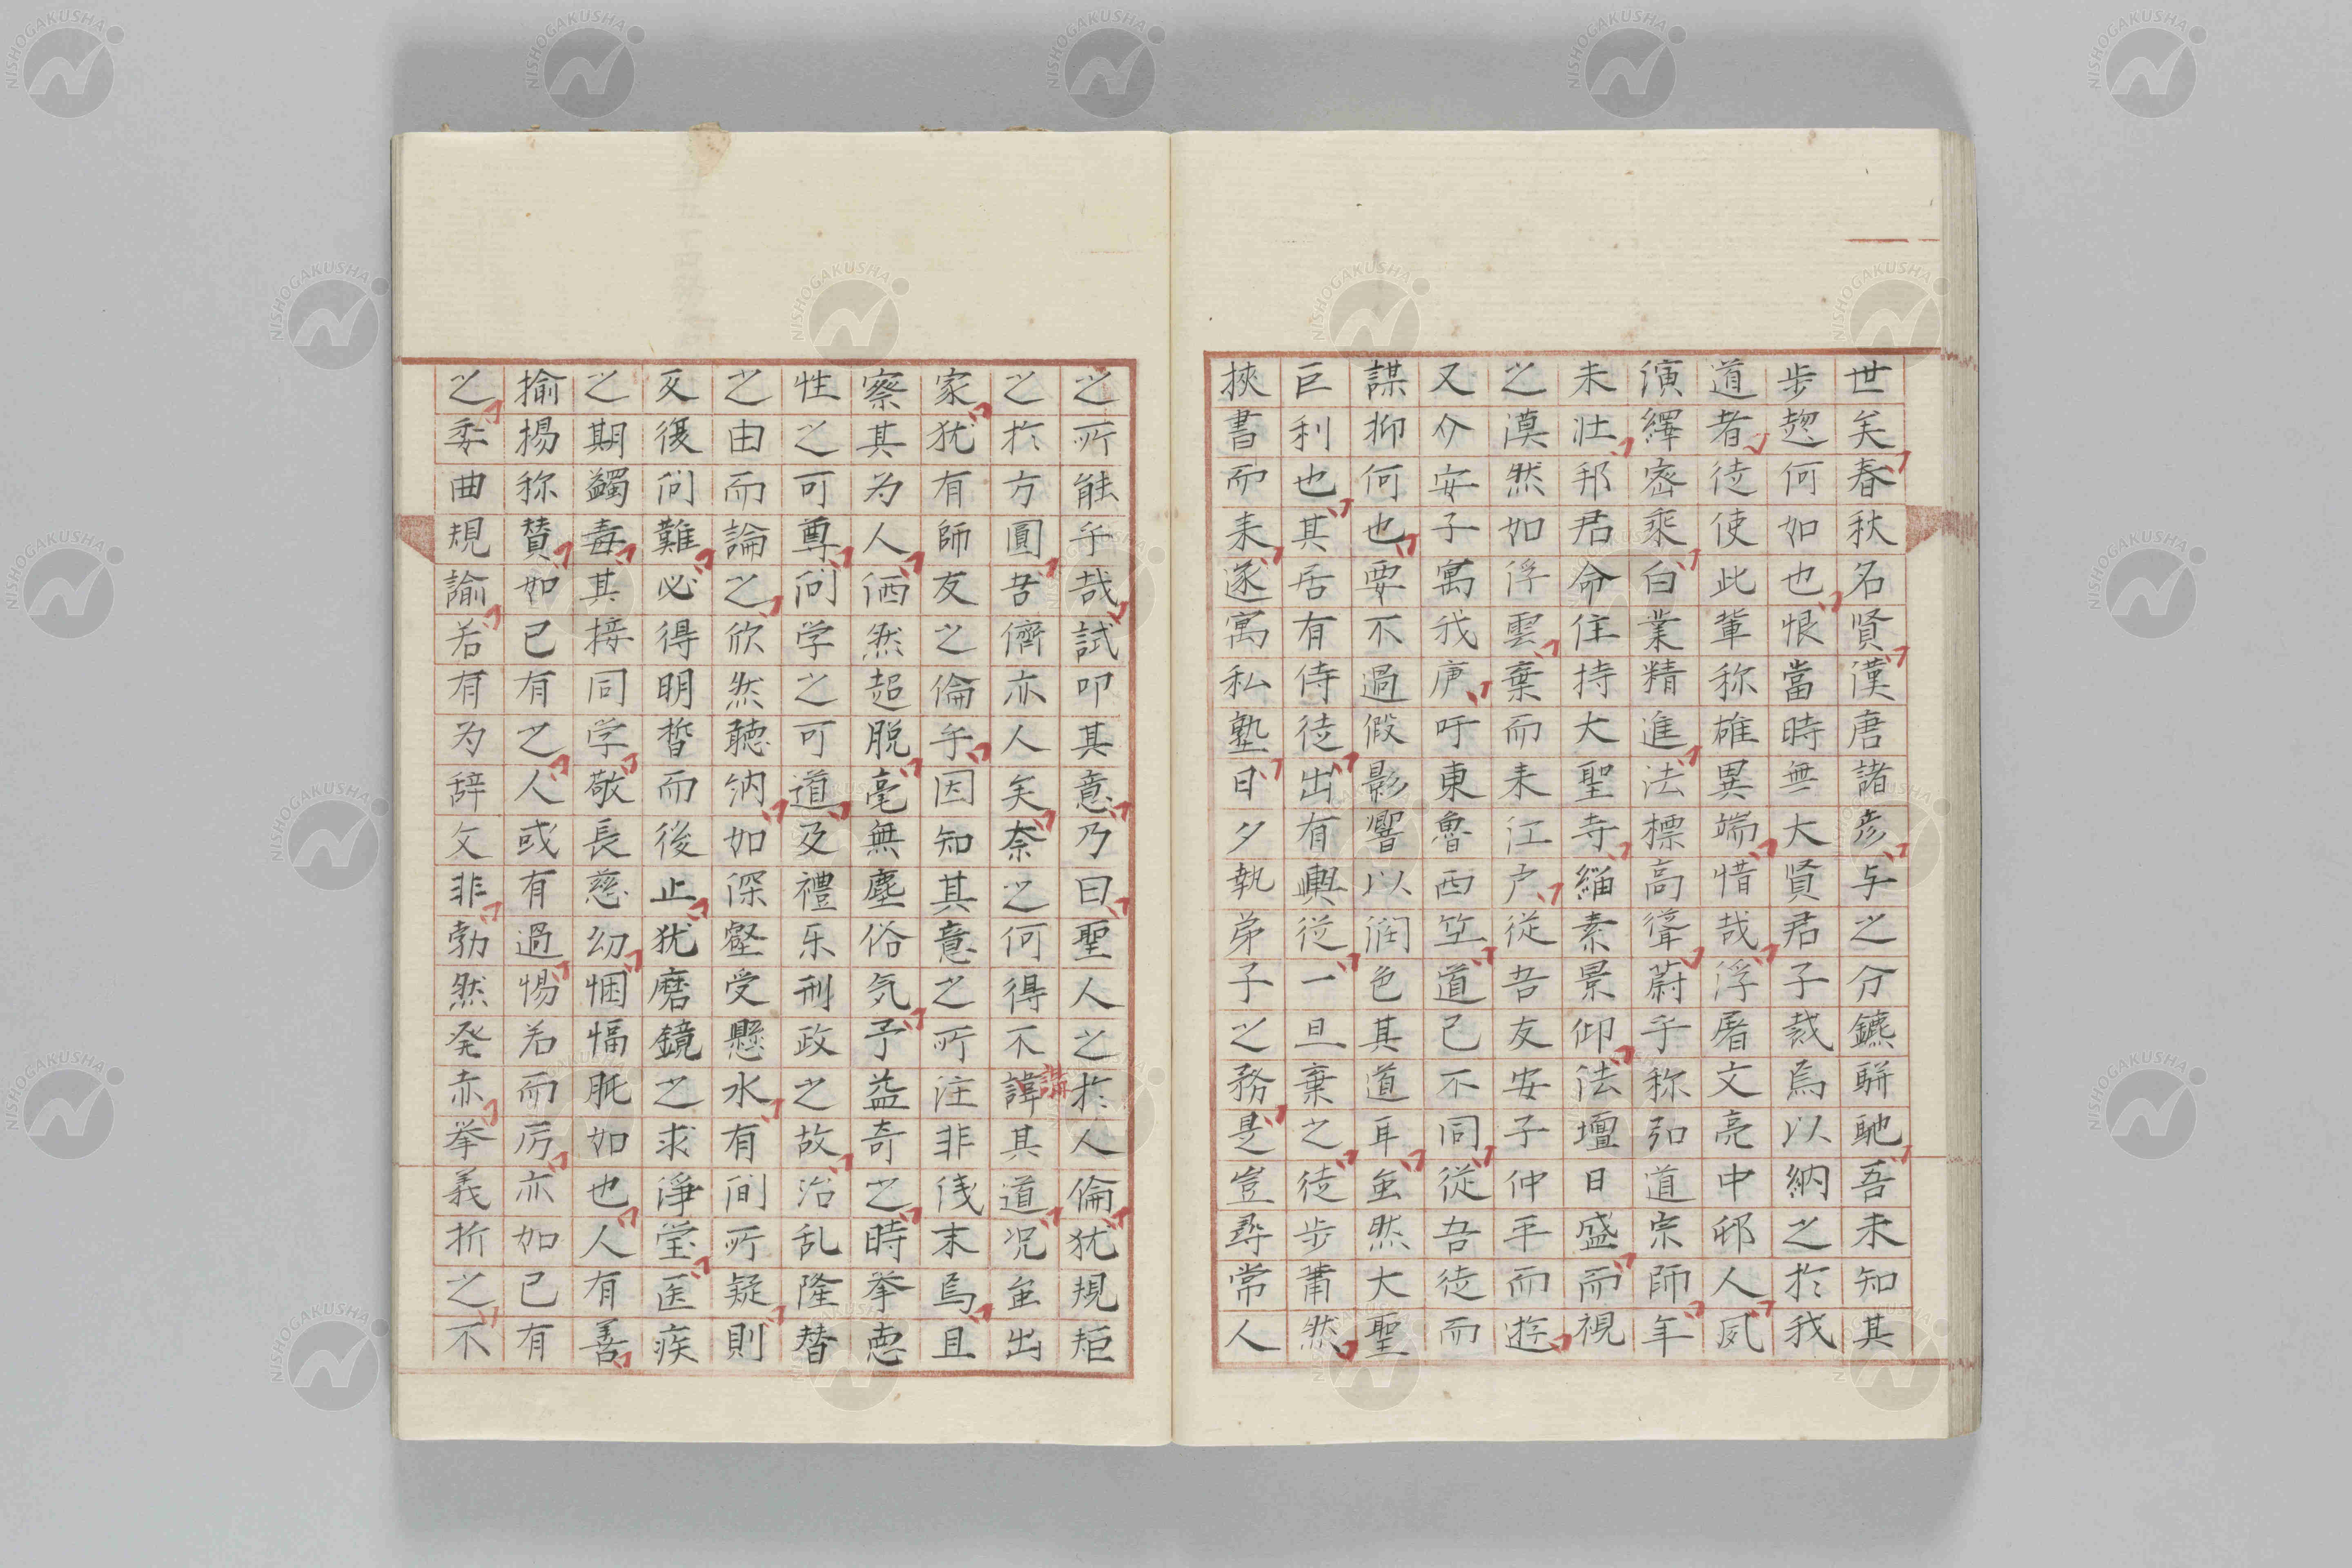 世矣春秋名賢漢唐諸彦与之分鑣駢馳吾未知其
步趨何如也恨當時無大賢君子裁焉以納之於我
道者徒使此輩称雄異端惜哉浮屠文亮中邨人夙
演繹密乘白業精進法標高聳蔚乎称弘道宗師年
未壮邦君命住持大聖寺緇素景仰法壇日盛而視
之漠然如浮雲棄而来江戸従吾友安子仲平而遊
又介安子寓我庚吁東魯西竺道已不同従吾徒而
謀抑何也要不過假影響以潤色其道耳虽然大聖
巨利也其居有侍徒出有輿従一旦棄之徒步莆然
挾書而来遂寓私塾日夕執弟子之務是豈尋常人
之所能乎哉試叩其意乃曰聖人之於人倫犹規矩
之於方圓吾儕亦人矣奈之何得不諱其道况虽出
講
家犹有師友之倫乎因知其意之所注非浅末焉且
察其为人洒然超脱毫無塵俗気予益奇之時挙悳
性之可尊问学之可道及禮乐刑政之故治乱隆替
之由而論之欣然聴納如深壑受懸水有间所疑則
反復问難必得明晳而後止犹磨鏡之求浄莹医疾
之期蠲毒其接同学敬長慈幼悃愊肫如也人有善
揄揚称賛如已有之人或有過惕若而厉亦如已有
之委曲規諭若有为辞文非勃然発赤挙義折之不